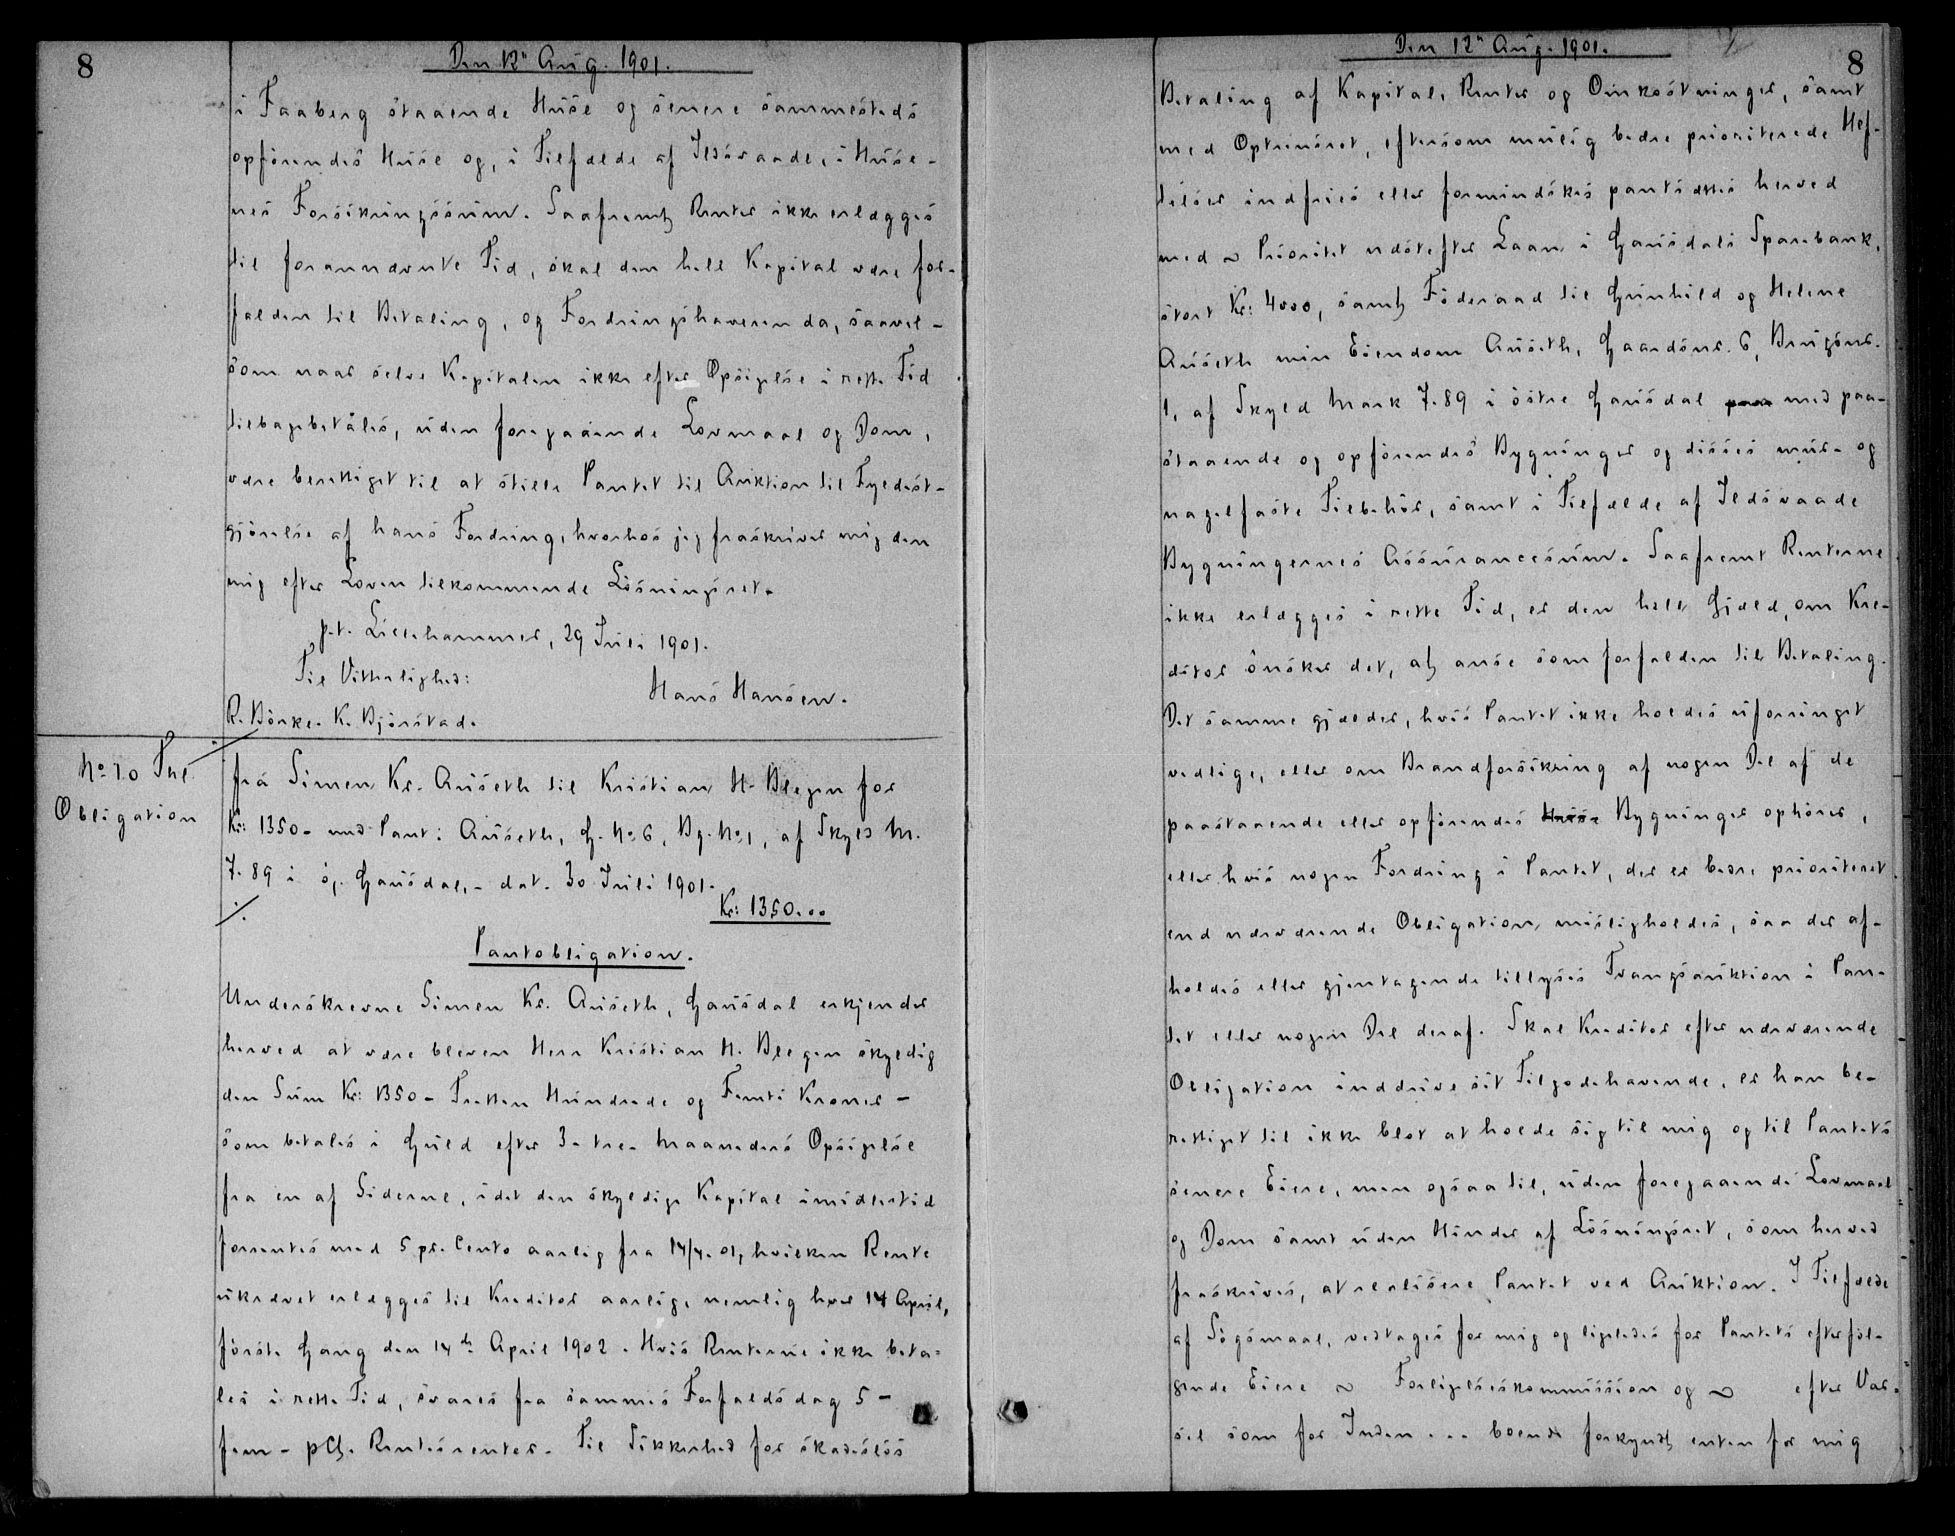 8
Den 12te Aug. 1901.
i Faaberg staaende Huse og senere sammesteds
opførendes Huse og, i Tilfælde af Ildsvaade, i Huse-
nes Forsikringssum. Saafremt Renter ikke erlægges
til forannævnte Tid, skal den hele Kapital være for-
falden til Betaling, og Fordringshaveren da, saavel-
som naar selve Kapitalen ikke efter Opsigelse i rette Tid
tilbagebetales, uden foregaaende Lovmaal og Dom,
være berettiget til at stille Pantet til Auktion til Fyldest-
gjørelse af hans Fordring, hvorhos jeg fraskriver mig den
mig efter Loven tilkommende Løsningsret.
p.t. Lillehammer, 29 Juli 1901.
Til Vitterlighed:
Hans Hansen.
R. Børke. K. Bjørstad.
No 10
Obligation
fra Simen Kr. Auseth til Kristian H. Blegen for
Kr: 1350- med Pant i Auseth, G. No 6, Bg. No 1, af Skyld M.
7.89 i ø. Gausdal, - dat. 30 Juli 1901.
Kr: 1350.00
Pantobligation.
Underskrevne Simen Kr. Auseth, Gausdal erkjender
herved at være bleven Herr Kristian H. Blegen skyldig
den Sum Kr: 1350 - Tretten Hundrede og Femti Kroner -
som betales i Guld efter 3- tre- Maaneders Opsigelse
fra en af Siderne, idet den skyldige Kapital imidlertid
forrentes med 5 pr. Cento aarlig fra 14/4. 01, hvilken Rente
ukrævet erlægges til Kreditor aarlig, nemlig hver 14 April,
første Gang den 14de April 1902. Hvis Renterne ikke beta-
les i rette Tid, svares fra sammes Forfaldsdag 5 -
fem - pCt. Rentesrenter. Til Sikkerhed for skadesløs
Den 12te Aug. 1901.
8
Betaling af Kapital, Renter og Omkostninger, samt
med Optrinsret, eftersom mulig bedre prioriterede Hef-
telser indfries eller formindskes pantsættes herved
med ~ Prioritet næstefter Laan i Gausdals Sparebank,
stort Kr: 4000, samt Føderaad til Gunhild og Helene
Auseth min Eiendom Auseth, Gaardsnr. 6, Brugsnr.
1, af Skyld Mark 7.89 i østre Gausdal paa med paa-
staaende og opførendes Bygninger og disses mur- og
nagelfaste Tilbehør, samt i Tilfælde af Ildsvaade
Bygningernes Assurancesum. Saafremt Renterne
ikke erlægges i rette Tid, er den hele Gjæld, om Kre-
ditor ønsker det, at anse som forfalden til Betaling.
Det samme gjælder, hvis Pantet ikke holdes uforringet
vedlige, eller om Brandforsikring af nogen Del af de
paastaaende eller opførendes Huse Bygninger ophører,
eller hvis nogen Fordring i Pantet, der er bedre prioriteret
end nærværende Obligation, misligholdes, saa der af-
holdes eller gjentagende tillyses Tvangsauktion i Pan-
tet eller nogen Del deraf. Skal Kreditor efter nærværende
Obligation inddrive sit Tilgodehavende, er han be-
rettiget til ikke blot at holde sig til mig og til Pantets
senere Eiere, men ogsaa til, uden foregaaende Lovmaal
og Dom samt uden Hinder af Løsningsret, som herved
fraskrives, at realisere Pantet ved Auktion. I Tilfælde
af Søgsmaal, vedtages for mig og ligeledes for Pantets efterføl-
gende Eiere ~ Forligelseskommission og ~ efter Var-
sel som for Inden ... boende forkyndt enten for mig